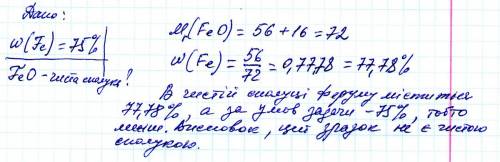 Дано:
w(Fe) = 75%
FeO - чиста сполука?
M(FeO) = 56 + 16 = 72
w(Fe) = 56/72 = 0,7778 = 77,78%
В чистій сполуці феруму міститься
77,78%, а за умов задачі - 75%, тобто
менше. Висновок, цей зразок не є чистою
сполукою.